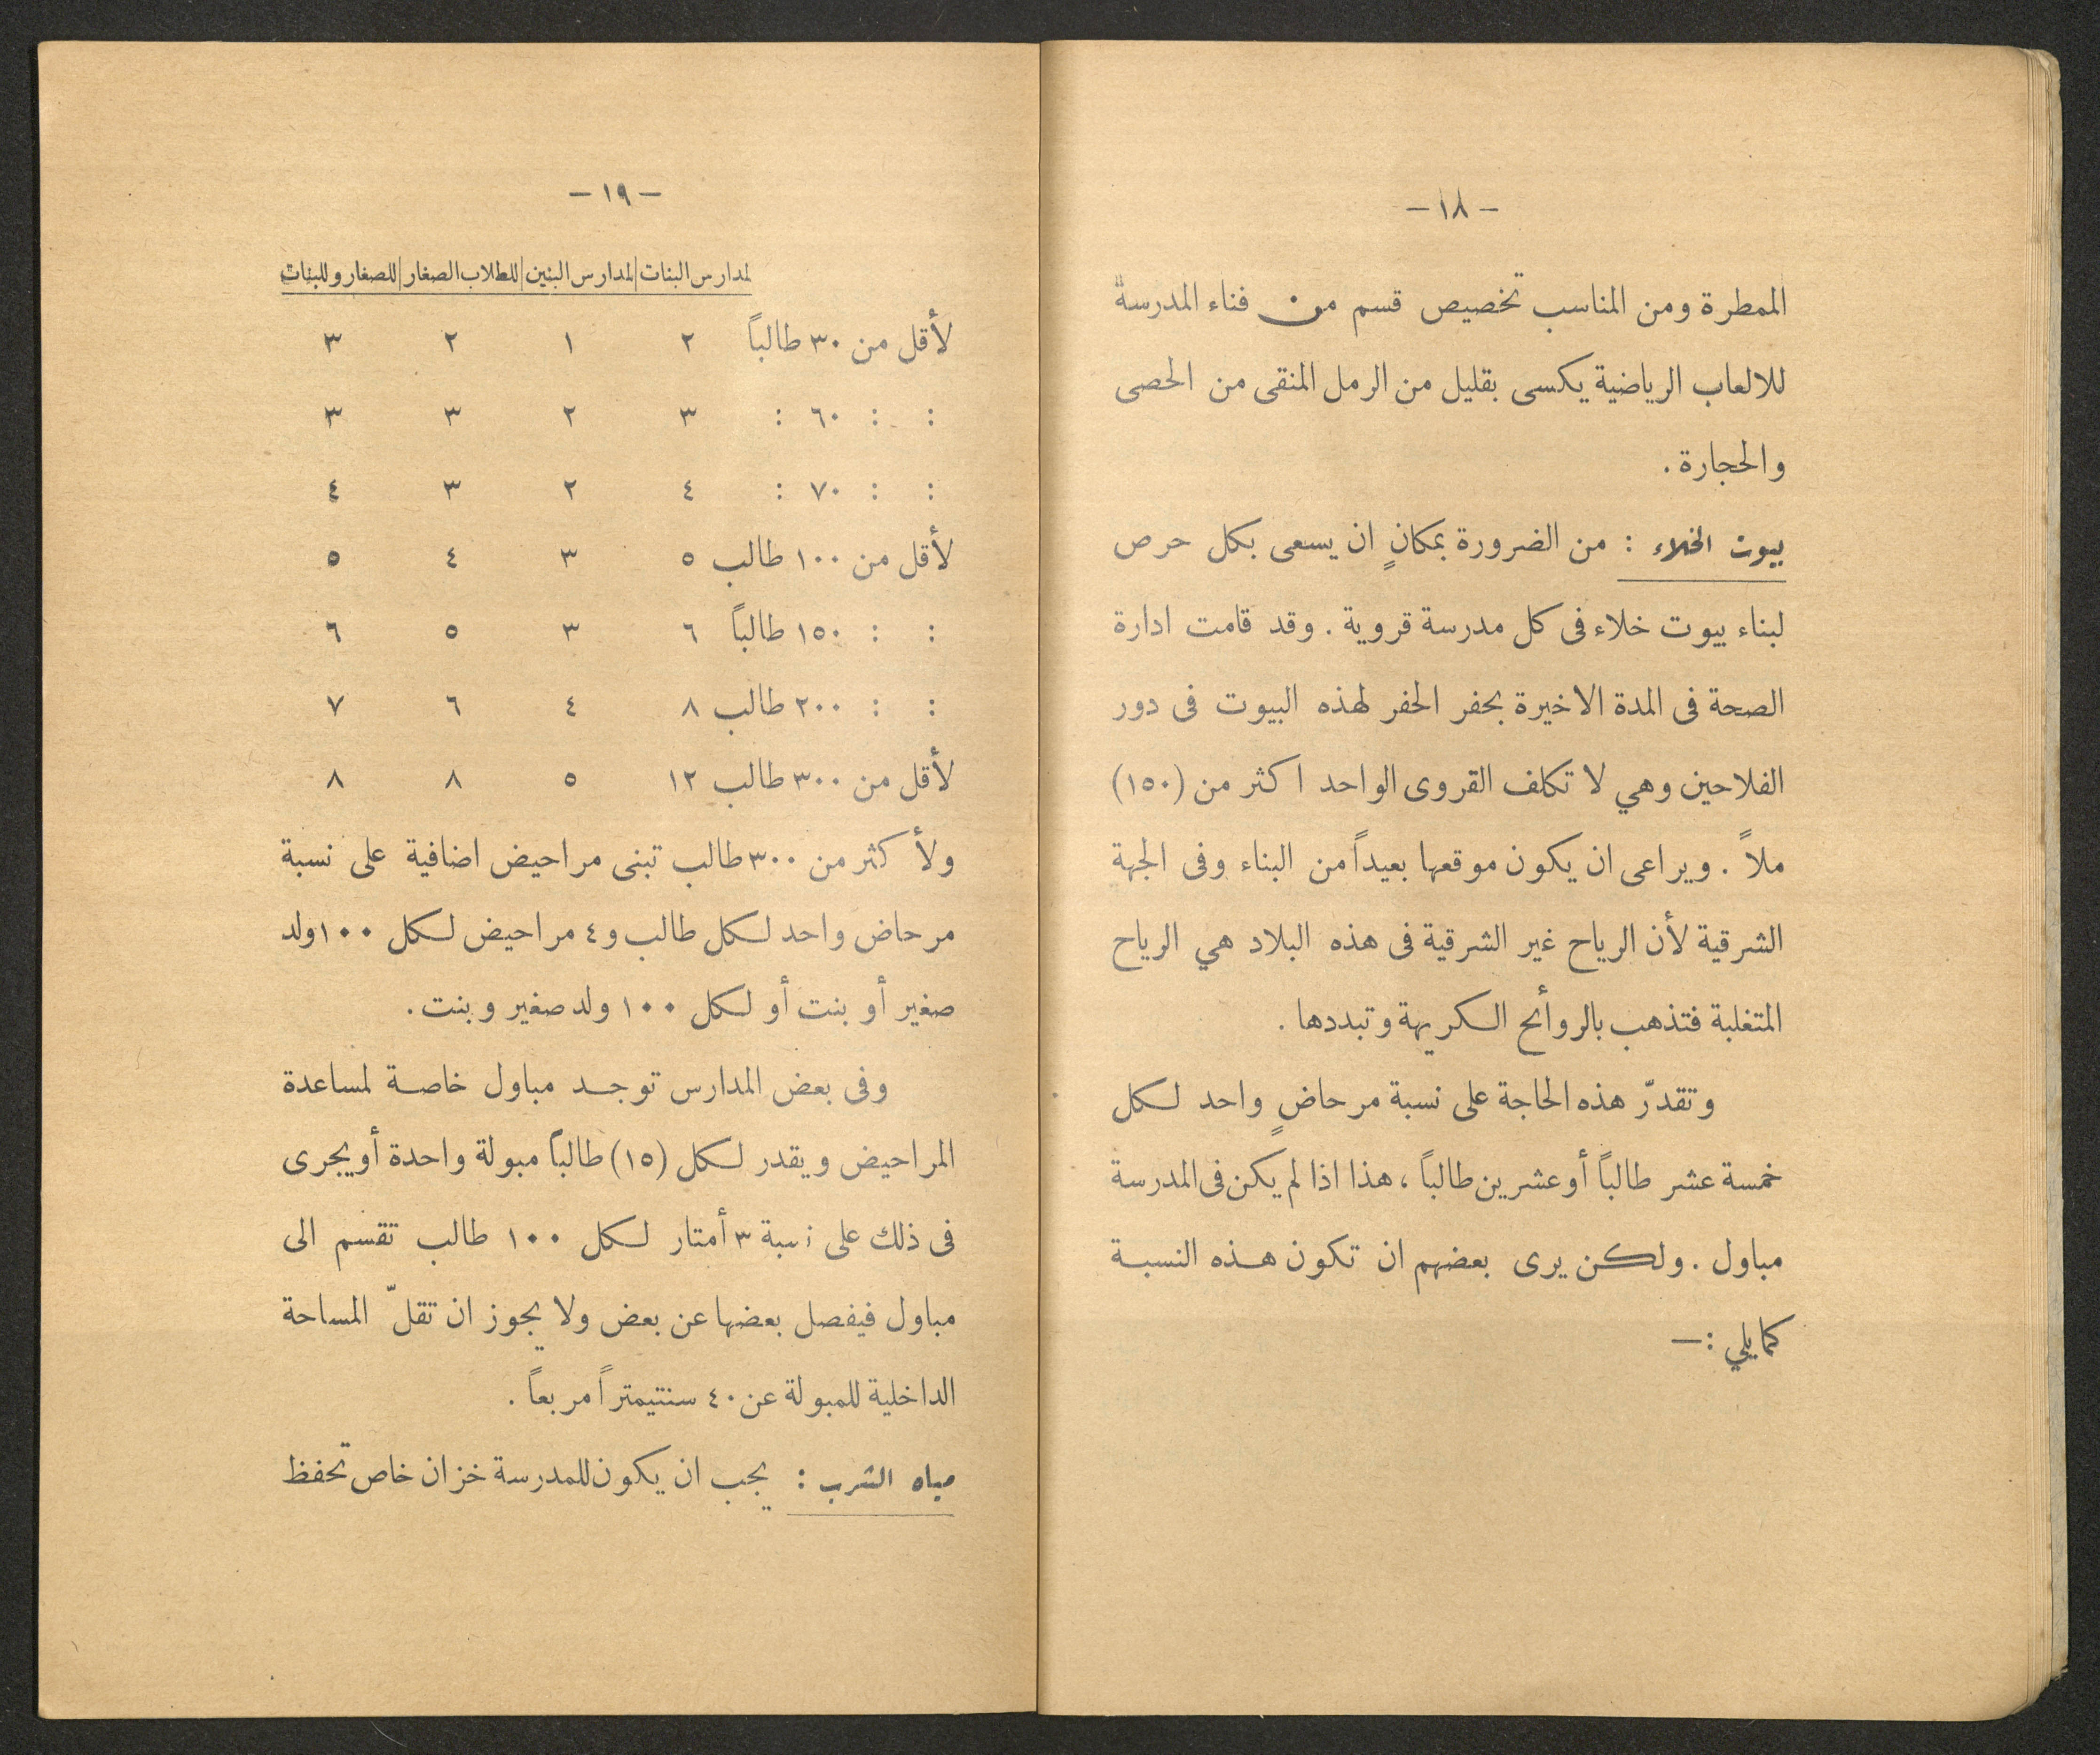 — ١٨ —
الممطرة ومن المناسب تخصيص قسم من فناء المدرسة
للالعاب الرياضية يكسى بقليل من الرمل المنقى من الحصى
والحجارة .
بيوت الخلاء : من الضرورة بمكانٍ ان يسعى بكل حرص
لبناء بيوت خلاء فى كل مدرسة قروية . وقد قامت ادارة
الصحة فى المدة الاخيرة بحفر الحفر لهذه البيوت فى دور
الفلاحين وهي لا تكلف القروى الواحد اكثر من (١٥٠)
ملاً . ويراعى ان يكون موقعها بعيداً من البناء وفى الجهة
الشرقية لأن الرياح غير الشرقية فى هذه البلاد هي الرياح
المتغلبة فتذهب بالروأئح الكريهة وتبددها .
وتقدرّ هذه الحاجة على نسبة مرحاضٍ واحد لكل
خمسة عشر طالباً أو عشرين طالباً ، هذا اذا لم يكن فى المدرسة
مباول . ولكن يرى بعضهم ان تكون هذه النسبة
كما يلي : —
— ١٩ —
لمدارس البنات | لمدارس البنين | للطلاب الصغار | للصغار وللبنات
لأقل من ٣٠ طالباً ٢ ١ ٢ ٣
: : ٦٠ : ٣ ٢ ٣ ٣
: : ٧٠ : ٤ ٢ ٣ ٤
لأقل من ١٠٠ طالب ٥ ٣ ٤ ٥
: : ١٥٠ طالباً ٦ ٣ ٥ ٦
: : ٢٠٠ طالب ٨ ٤ ٦ ٧
لأقل من ٣٠٠ طالب ١٢ ٥ ٨ ٨
ولأ كثر من ٣٠٠ طالب تبنى مراحيض اضافية على نسبة
مرحاض واحد لكل طالب و٤ مراحيض لكل ١٠٠ ولد
صغير أو بنت أو لكل ١٠٠ ولد صغير وبنت .
وفى بعض المدارس توجد مباول خاصة لمساعدة
المراحيض ويقدر لكل (١٥) طالباً مبولة واحدة أو يجرى
فى ذلك على نسبة ٣ أمتار لكل ١٠٠ طالب تقسم الى
مباول فيفصل بعضها عن بعض ولا يجوز ان تقلّ المساحة
الداخلية للمبولة عن ٤٠ سنتيمتراً مربعاً .
مياه الشرب : يجب ان يكون للمدرسة خزان خاص تحفظ